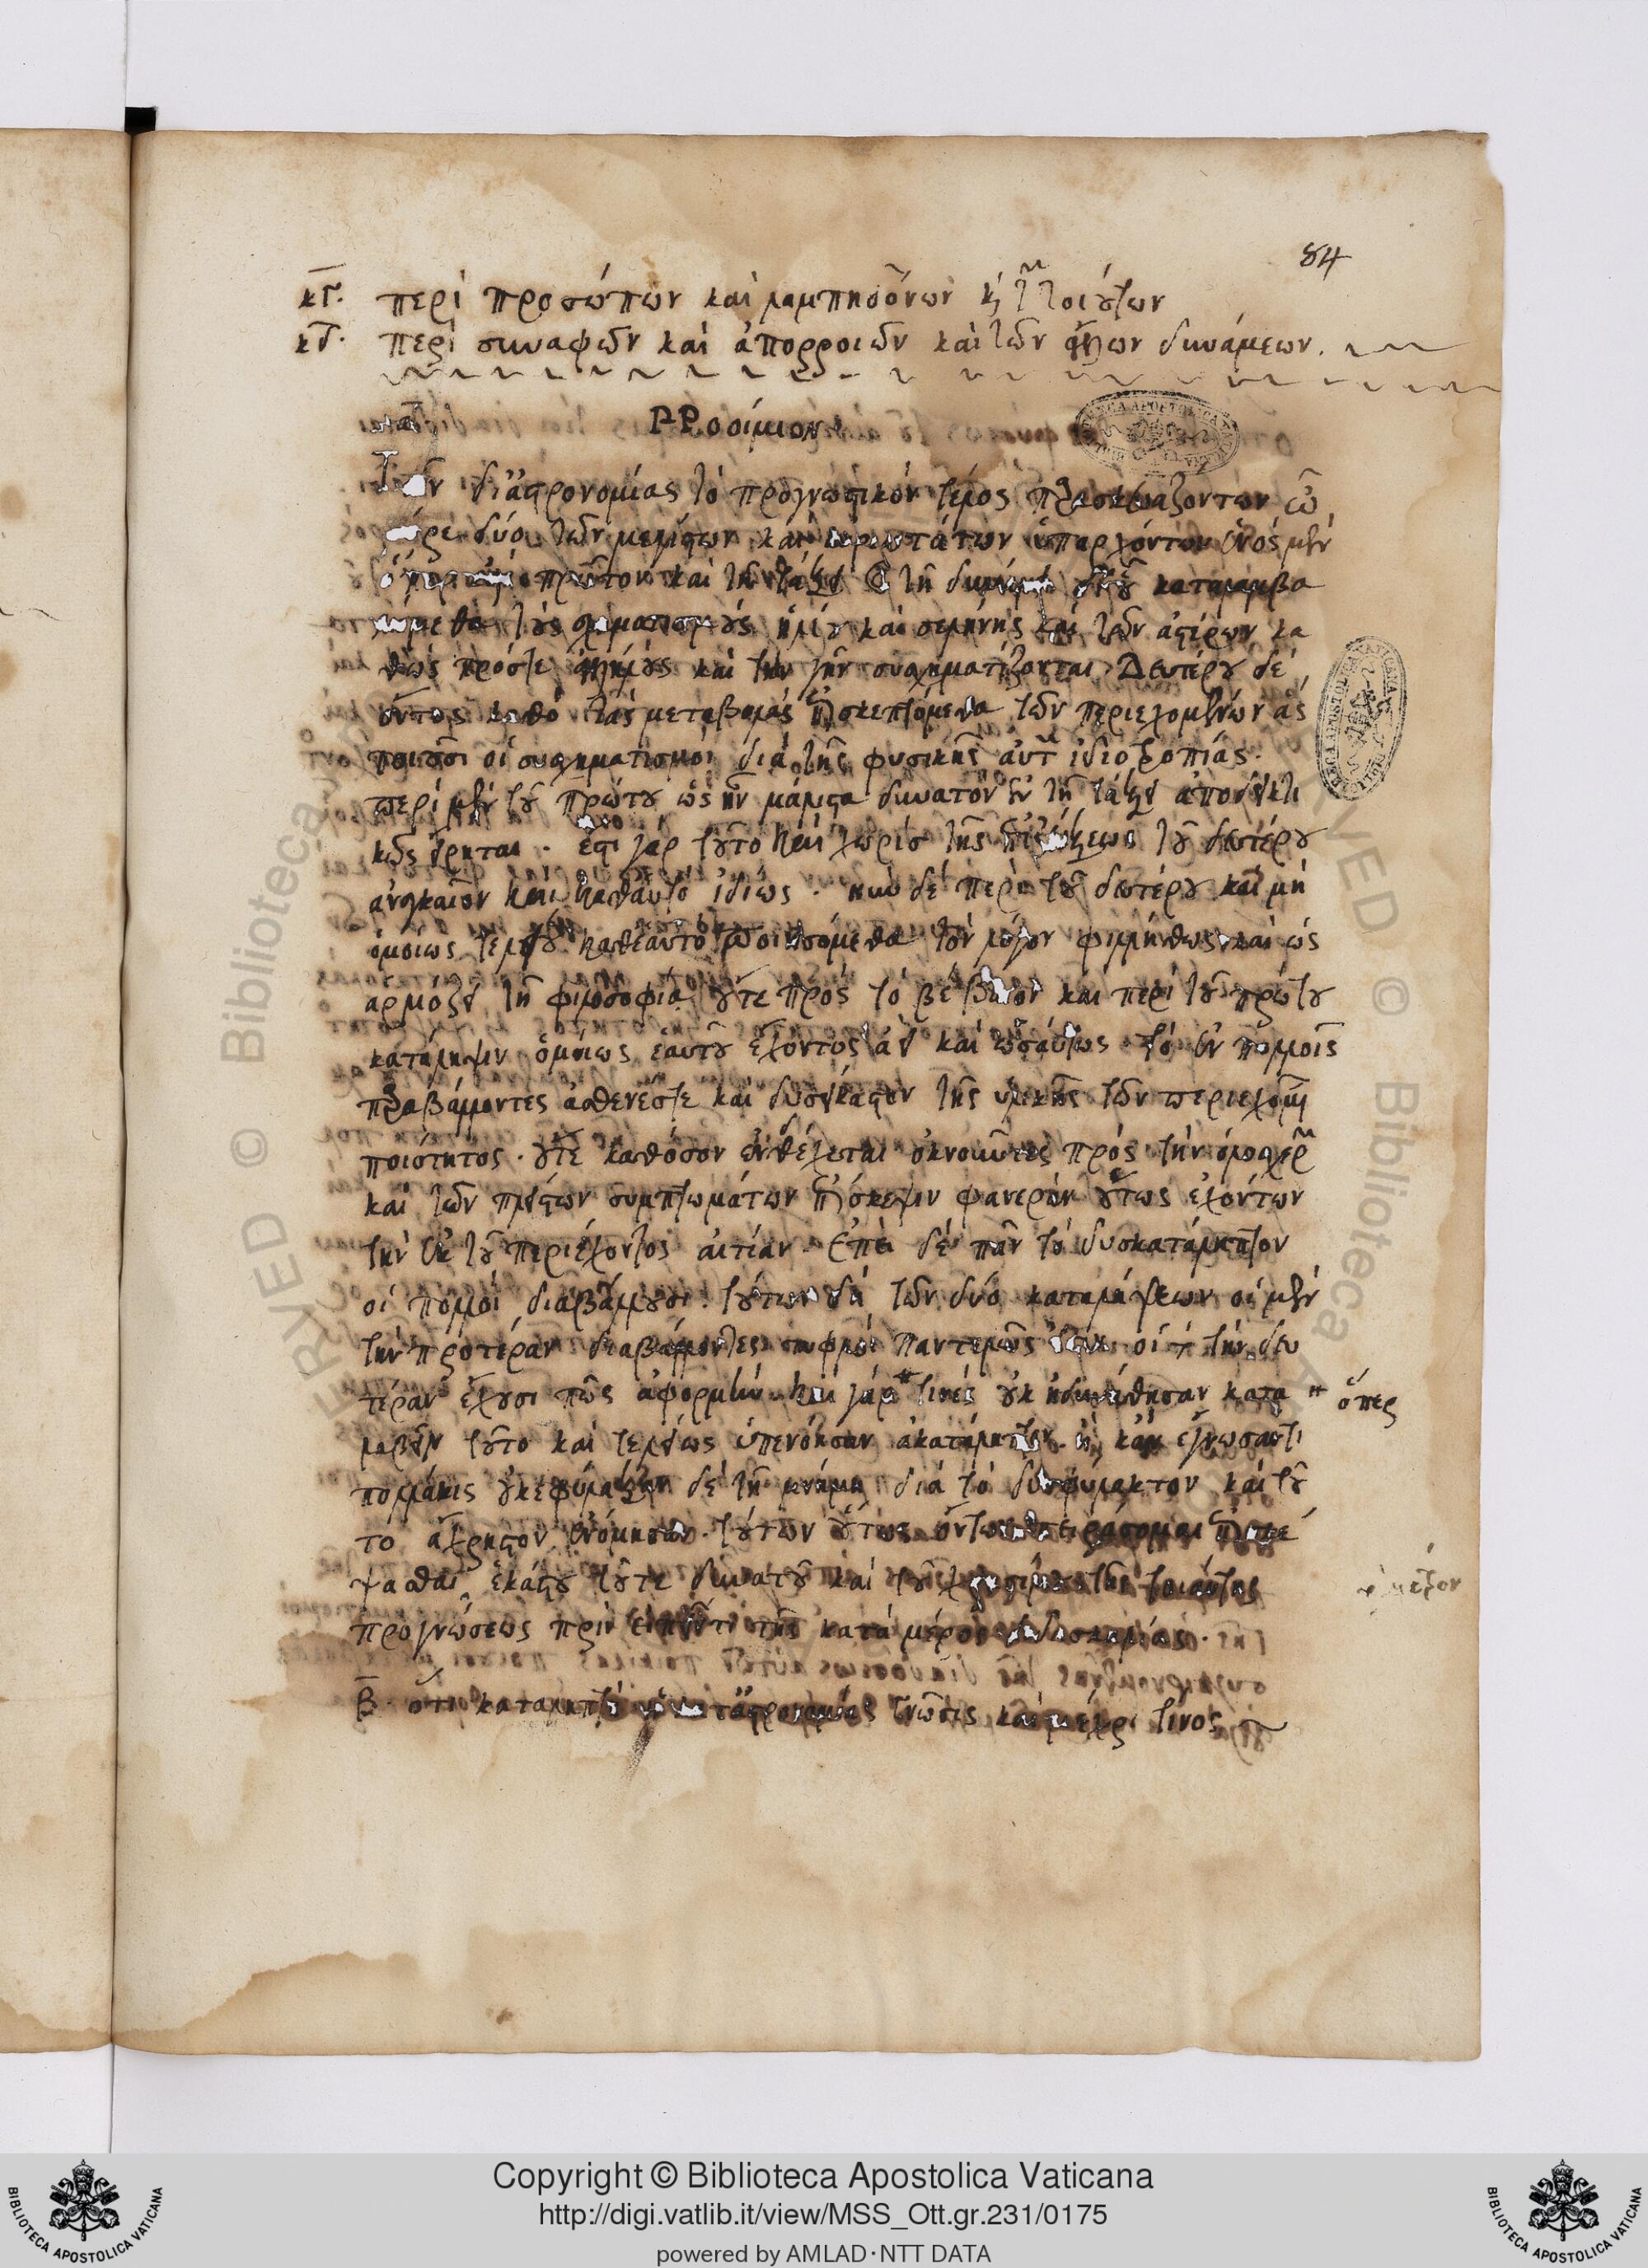 84
κγ. περὶ προσώπων καὶ λαμπηδόνων κ τ τοιούτων
κδ. περὶ συναφῶν καὶ ἀπορροιῶν καὶ τῶν ἄλλων δυνάμεων.
Προοίμιον
Τῶν δι' ἀστρονομίας τὸ προγνωστικὸν τέλος παρασκευαζόντων ὦ
δύο τῶν μεγίστων καὶ κυριωτάτων ὑπαρχόντων ἑνὸς μὲν
πρώτου καὶ τῇ τάξει καὶ τῇ δυνάμει καταλαμβα
τοὺς σχηματισμοὺς ἡλίου καὶ σελήνης καὶ τῶν ἀστέρων κα
καὶ τὴν γῆν συσχηματίζονται. Δευτέρου δὲ
ὄντος καθ' ὃ τὰς μεταβολὰς ἐπισκεπτόμεθα τῶν περιεχομένων ἃς
ποιοῦσι οἱ συσχηματισμοὶ διὰ τῆς φυσικῆς αὐτῶν ἰδιοτροπίας.
περὶ μὲν τοῦ πρώτου ὡς ἦν μάλιστα δυνατὸν ἐν τῇ τάξει ἀποδεικτι
κῶς εἴρηται. ἔστι γὰρ τοῦτο καὶ χωρὶς τῆς τοῦ δευτέρου
ἀναγκαῖον καὶ καθ' αὑτὸ ἰδίως. νῦν δὲ περὶ τοῦ δευτέρου καὶ μὴ
ὁμοίως τελείου καθ' ἑαυτὸ ποιησόμεθα τὸν λόγον φιλαλήθως καὶ ὡς
ἁρμόζει τῇ φιλοσοφίᾳ οὔτε πρὸς τὸ βέβαιον καὶ περὶ τοῦ πρώτου
κατάληψιν ὁμοίως ἑαυτοῦ ἔχοντος ἀεὶ καὶ ὡσαύτως τὸ ἐν πολλοῖς
παραβάλλοντες ἀσθενές τε καὶ δυσείκαστον τῆς ὑλικῆς τῶν περιεχομένων
ποιότητος. οὔτε καθ' ὅσον ἐνδέχεται ὀκνοῦντες πρὸς τὴν
καὶ τῶν πλείστων συμπτωμάτων ἐπίσκεψιν φανερὰν οὕτως ἐχόντων
τὴν ἐκ τοῦ περιέχοντος αἰτίαν. Ἐπεὶ δὲ πᾶν τὸ δυσκατάληπτον
οἱ πολλοὶ διαβάλλουσι. τούτων δὴ τῶν δύο καταλήψεων οἱ μὲν
τὴν προτέραν διαβάλλοντες τυφλοὶ παντελῶς εἰσὶν οἱ δὲ τὴν δευ
τέραν ἔχουσί πως ἀφορμὴν καὶ γὰρ τινὲς οὐκ ἠδυνήθησαν κατα
ὅπερ
λαβεῖν τοῦτο καὶ τελείως ὑπενόησαν ἀκατάληπτον. ἢ κἂν ἔγνωσάν τι
πολλάκις οὐκ ἐφύλαξαν δὲ τῇ μνήμῃ διὰ τὸ δυσφύλακτον καὶ τοῦ
το ἄχρηστον ἐνόμισαν. τούτων οὕτως ὄντων πειράσομαι
ψασθαι ἑκάστου τοῦτε δυνατοῦ καὶ τοῦ χρησίμου τῆς τοιαύτης
προγνώσεως πρὶν τῆς κατὰ μέρος διδασκαλίας.
Β. ὅτι καταληπτὴ γνῶσις καὶ μέχρι τίνος
Copyright © Biblioteca Apostolica Vaticana
http://digi.vatlib.it/view/MSS_Ott.gr.231/0175
powered by AMLAD·NTT DATA
BIBLIOTECA APOSTOLICA VATICANA
BIBLIOTECA APOSTOLICA VATICANA